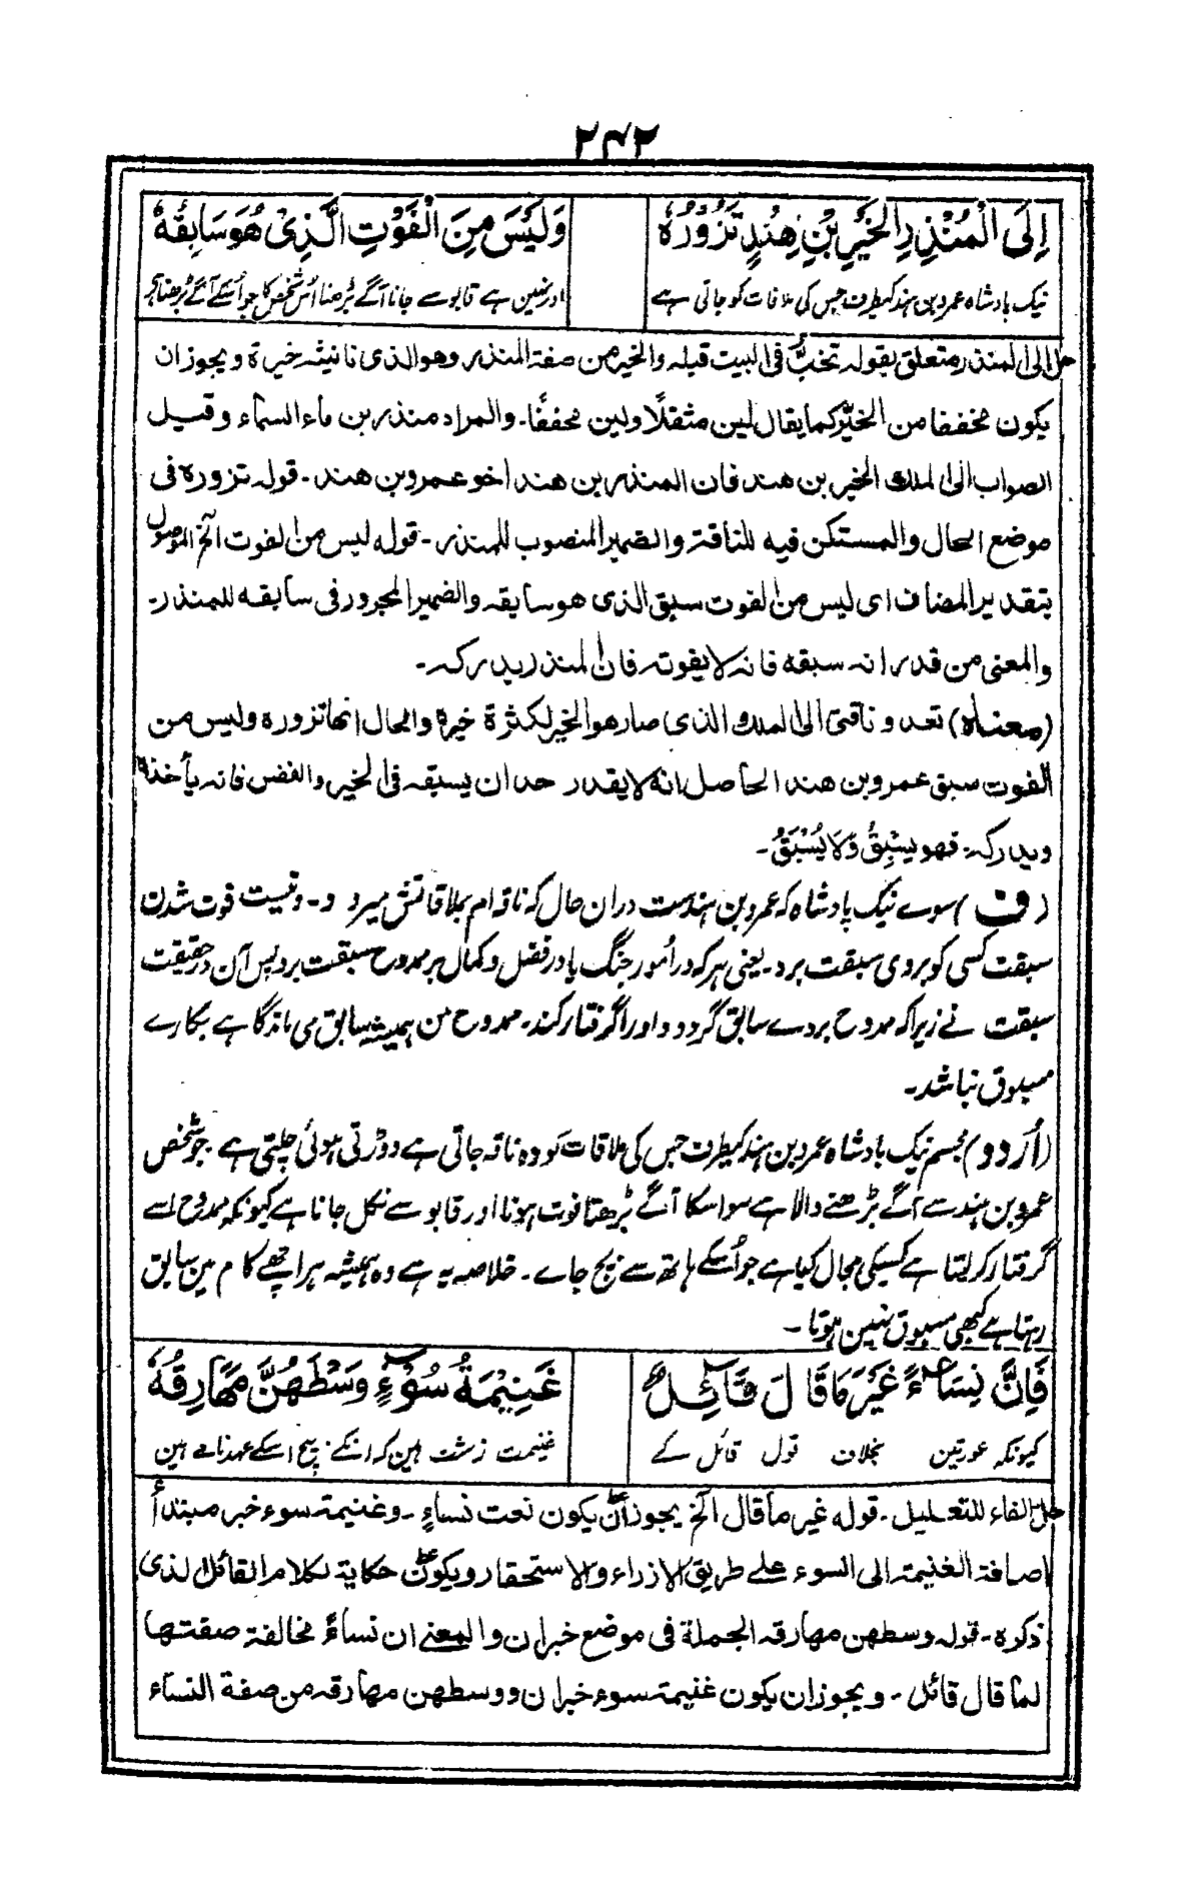 ۲۴۲
اِلَى الْمُنْذِرِ الْخَيْرِ بْنِ هِنْدٍ تَزُوْرُهٗ
وَلَيْسَ مِنَ الْفَوْتِ الَّذِىْ هُوَ سَابِقُهٗ
نیک بادشاہ عمرو بن ہند کیطرف جس کی ملاقات کو جاتی ہے
اور نہین ہے قابو سے جانا آگے بڑھنا اُس شخص کا جو اُسکے آگے بڑھنا
حل الى المنذر متعلق بقوله تخبّ فى البيت قبله والخير من صفة المنذر وهو الذى تانيثه خيرة ويجوز ان
يكون مخففا من الخيّر كما يقال لين مثقلًا ولين مخففًا۔ والمراد منذر بن ماء السماء وقيل
الصواب الى الملك الخير بن هند فان المنذر بن هند اخو عمرو بن هند۔ قوله تزوره فى
موضع الحال والمستكن فيه للناقة والضمير المنصوب للمنذر۔ قوله ليس من الفوت الخ الموصول
بتقدير المضاف اى ليس من الفوت سبق الذى هو سابقه والضمير المجرور فى سابقه للمنذر۔
والمعنى من قدر انه سبقه فانه لا يفوته فان المنذر يدركه۔
(معناه) تعدو ناقتى الى الملك الذى صار هو الخير لكثرة خيره والحال انها تزوره وليس من
الفوت سبق عمرو بن هند الحاصل انه لا يقدر احد ان يسبقه فى الخير والفضل فانه يأخذه
ويدركه فهو يَسْبِقُ وَلَا يُسْبَقُ۔
(ف) سوے نیک پادشاہ کہ عمرو بن ہندست دران حال کہ ناقہ ام بملاقاتش میرود۔ ونیست فوت شدن
سبقت کسی کو بروی سبقت برد۔ یعنی ہرکہ در اُمور جنگ یا در فضل وکمال بر ممدوح سبقت برد پس آن درحقیقت
سبقت نے زیرا کہ ممدوح بر وے سابق گردد و اورا گرفتار کند۔ ممدوح من ہمیشہ سابق می ماند گاہے بکارے
مسبوق نباشد۔
(اُردو) مجسم نیک بادشاہ عمرو بن ہند کیطرف جس کی ملاقات کو وہ ناقہ جاتی ہے دوڑتی ہوئی چلتی ہے جو شخص
عمرو بن ہند سے آگے بڑھنے والا ہے سو اسکا آگے بڑھنا فوت ہونا اور قابو سے نکل جانا ہے کیونکہ ممدوح اسے
گرفتار کر لیتا ہے کسیکی مجال کیا ہے جو اُسکے ہاتھ سے بچ جاے۔ خلاصہ یہ ہے وہ ہمیشہ ہر اچھے کام مین سابق
رہتا ہے کبھی مسبوق نہین ہوتا۔
فَاِنَّ نِسَاءً غَيْرَ مَا قَالَ قَائِلٌ
غَنِيْمَةُ سُوْءٍ وَسْطَهُنَّ مَهَارِقُهٗ
کیونکہ عورتین بخلاف قول قائل کے
غنیمت زشت ہین کہ انکے بیچ اسکے عہدنامے ہین
حل الفاء للتعليل۔ قوله غير ما قال الخ يجوز ان يكون نعت نساءٍ۔ وغنيمة سوء خبر مبتدأ
اضافة الغنيمة الى السوء على طريق الازراء والاستحقار ويكون حكاية لكلام القائل الذى
ذكره۔ قوله وسطهن مهارقه الجملة فى موضع خبر ان والمعنى ان نساءً مخالفة صفتها
لما قال قائل۔ ويجوز ان يكون غنيمة سوء خبر ان ووسطهن مهارقه من صفة النساء